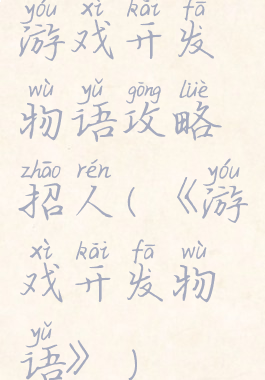 yóu xì kāi fā
游戏开发
wù yǔ gōng lüè
物语攻略
zhāo rén yóu
招人(《游
xì kāi fā wù
戏开发物
yǔ
语》)